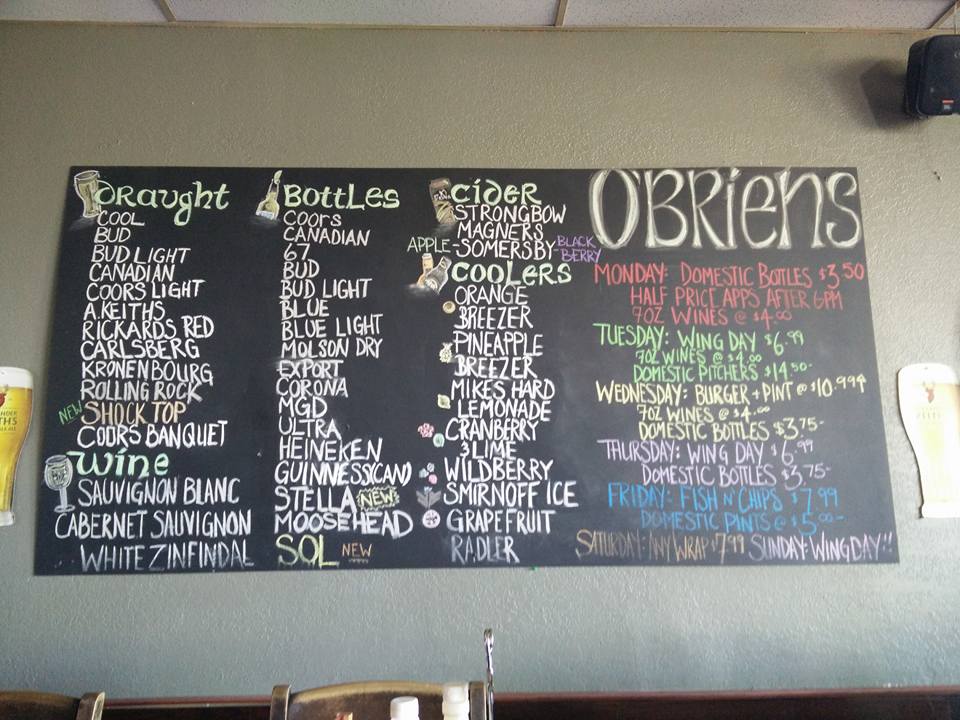 Draught
COOL
BUD
BUD LIGHT
CANADIAN
COORS LIGHT
A.KEITHS
RICKARDS RED
CARLSBERG
KRONENBOURG
ROLLING ROCK
NEW SHOCK TOP
COORS BANQUET
Wine
SAUVIGNON BLANC
CABERNET SAUVIGNON
WHITE ZINFINDAL
BOTTLES
COORS
CANADIAN
67
BUD
BUD LIGHT
BLUE
BLUE LIGHT
MOLSON DRY
EXPORT
CORONA
MGD
ULTRA
HEINEKEN
GUINNESS(CAN)
STELLA NEW
MOOSEHEAD
SOL NEW
CIDER
STRONGBOW
MAGNERS
APPLE-SOMERSBY-BLACK
BERRY
COOLERS
ORANGE
BREEZER
PINEAPPLE
BREEZER
MIKES HARD
LEMONADE
CRANBERRY
& LIME
WILDBERRY
SMIRNOFF ICE
GRAPEFRUIT
RADLER
O'BRIENS
MONDAY: DOMESTIC BOTTLES $3.50
HALF PRICE APPS AFTER 6PM
7OZ WINES @ $4.00
TUESDAY: WING DAY $6.99
7OZ WINES @ $4.00
DOMESTIC PITCHERS $14.50-
WEDNESDAY: BURGER + PINT @ $10.99
7OZ WINES @ $4.00
DOMESTIC BOTTLES $3.75-
THURSDAY: WING DAY $6.99
DOMESTIC BOTTLES $3.75-
FRIDAY: FISH N' CHIPS $7.99
DOMESTIC PINTS @ $5.00-
SATURDAY: ANY WRAP $7.99 SUNDAY: WING DAY!!